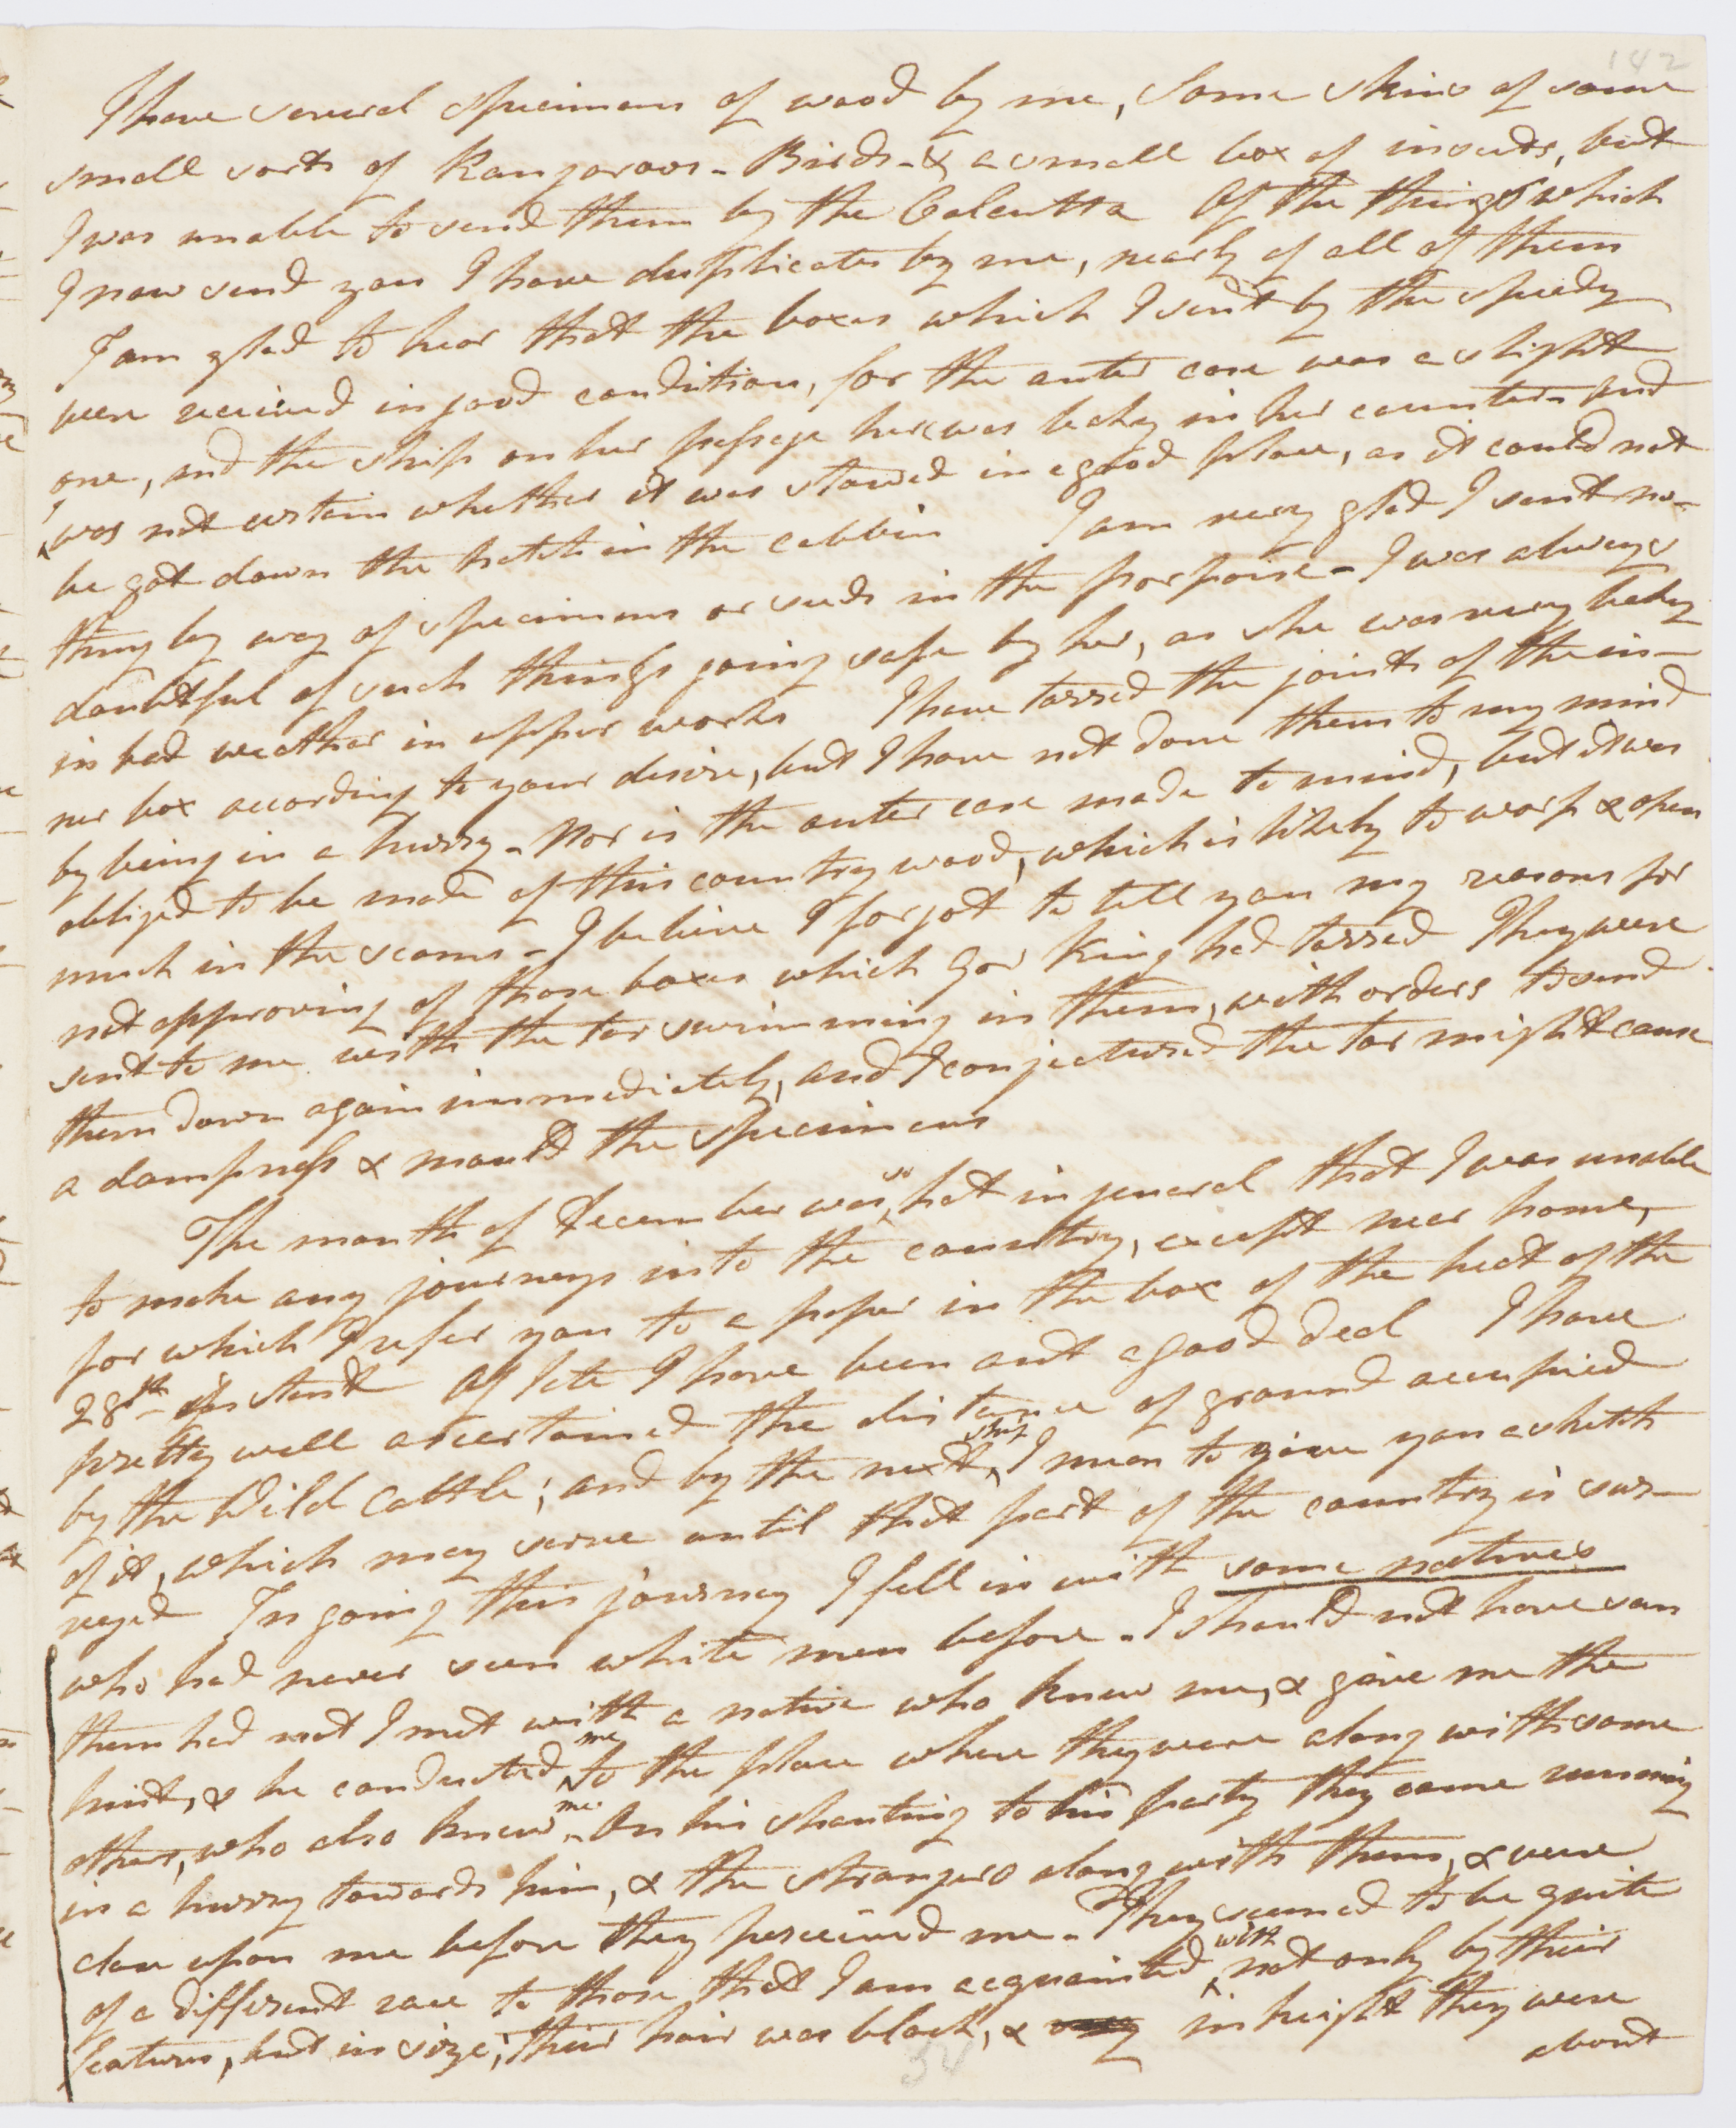 142
I have several specimens of wood by me, some skins of some
small sorts of Kangaroos - Birds - & a small box of insects, but
I was unable to send them by the Calcutta Of the things which
I now send you I have duplicates by me, nearly of all of them
I am glad to hear that the boxes which I sent by the speedy
were received in good condition, for the outer case was a slight
one, and the ship on her passage here was leaky in her counter - and
I was not certain whether it was stowed in a good place, as it could not
be got down the hatch in the cabbin I am very glad I sent no-
thing by way of specimens or seeds in the porpoise - I was always
doubtful of such things going safe by her, as she was very leaky
in bad weather in upper works I have tarred the joints of the in-
ner box according to your desire, but I have not done them to my mind
by being in a hurry - Nor is the outer case made to mind, but it was
obliged to be made of this country wood, which is likely to warp & open
much in the seams - I believe I forgot to tell you my reasons for
not approving of those boxes which Gov King had tarred They were
sent to me with the tar swimming in them, with orders to send
them down again immediately, and I conjectured the tar might cause
a dampness & mould the specimens
The month of December was so hot in general that I was unable
to make any journeys into the country, except near home,
for which I refer you to a paper in the box of the heat of the
28th instant Of late I have been out a good deal I have
pretty well ascertained the distance of ground occupied
by the Wild Cattle; and by the next ship I mean to give you a sketch
of it, which may serve until that part of the country is sur-
veyed In going this journey I fell in with some natives
who had never seen white men before - I should not have saw
them had not I met with a native who knew me, & give me the
hint, & he conducted me to the place where they were along with some
others, who also knew me - On his shouting to his party they came running
in a hurry towards him, & the strangers along with them, & were
close upon me before they perceived me - They seemed to be quite
of a different race to those that I am acquainted with, not only by their
features, but in size; their hair was black, & in height they were
about